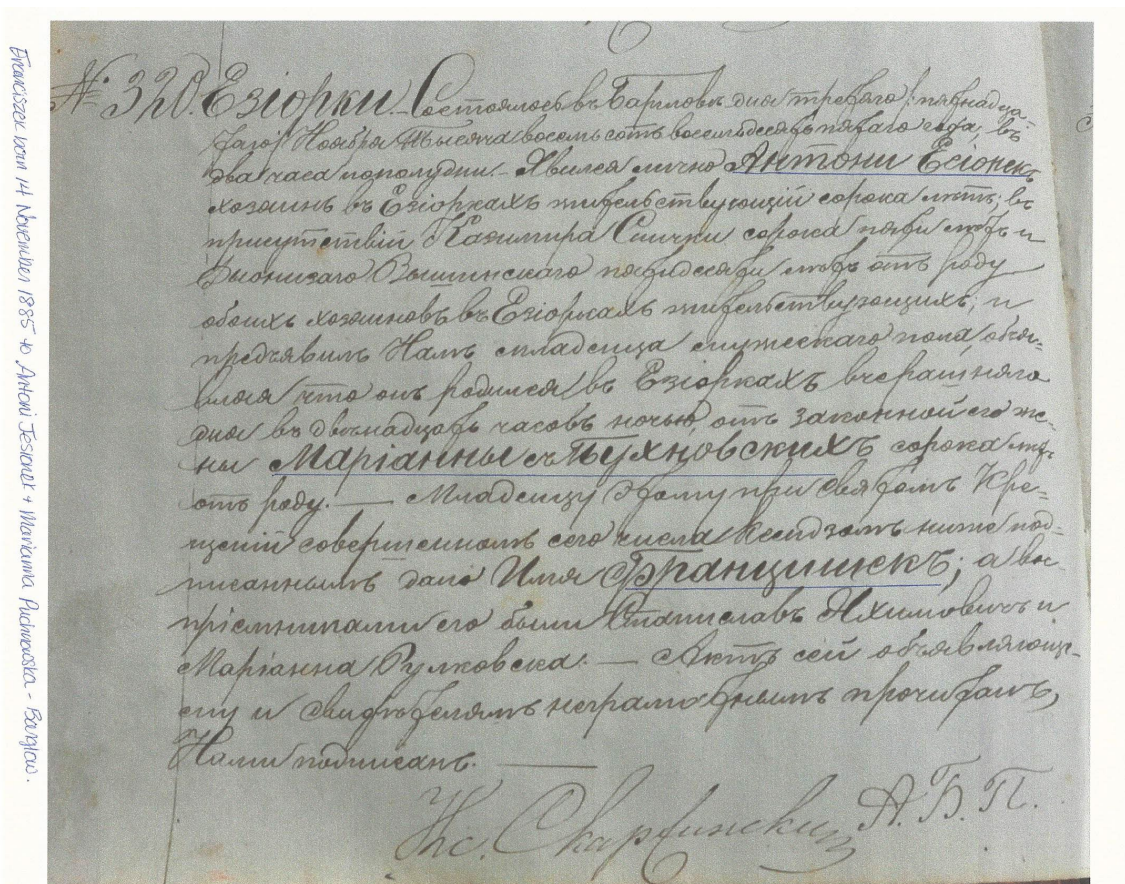 № 320. Езіорки. Состоялось въ Баргловѣ дня третьяго /: пятнадца-
таго :/ Ноября тысяча восемьсотъ восемьдесятъ пятаго года, въ
два часа пополудни. – Явился лично Антони Есіонекъ
хозаинъ въ Езіоркахъ жительствующій сорока лѣтъ; въ
присутствіи Казимира сорока пяти лѣтъ и
Діонизаго Вышинскаго пятидесяти лѣтъ отъ роду
обоихъ хозаиновъ въ Езіоркахъ жительствующихъ; и
предъявилъ Намъ младенца мужескаго пола, объя-
вляя что онъ родился въ Езіоркахъ вчерашняго
дня въ двѣнадцать часовъ ночью, отъ законной его же-
ны Маріанны съ Пухновскихъ сорока лѣтъ
отъ роду. — Младенцу этому при Святомъ Кре-
щеніи совершенномъ сего числа Ксендзомъ ниже под-
писаннымъ дано Имя Францишекъ; а вос-
пріемниками его были Станиславъ Яхимовичъ и
Маріанна Рулковска. — Актъ сей объявляюще-
му и свидѣтелямъ неграмотнымъ прочитанъ,
Нами подписанъ. —
Кс. Скаржинскій А. Б. П.
Franciszek born 14 November 1885 to Antoni Jesionek + Marianna Puchnowska - Barglow.